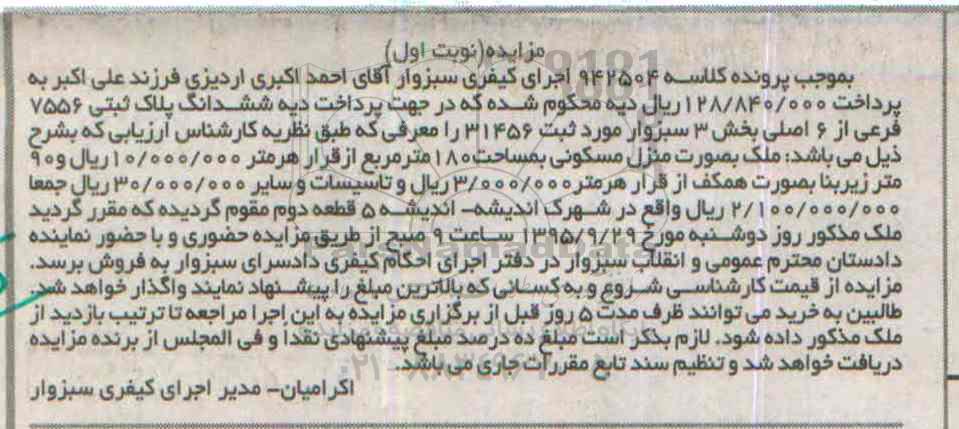 مزایده(نوبت اول)
بموجب پرونده کلاسه ۹۴۲۵۰۴ اجرای کیفری سبزوار آقای احمد اکبری اردیزی فرزند علی اکبر به
پرداخت ۱۲۸/۸۴۰/۰۰۰ ریال دیه محکوم شده که در جهت پرداخت دیه ششدانگ پلاک ثبتی ۷۵۵۶
فرعی از ۶ اصلی بخش ۳ سبزوار مورد ثبت ۳۱۴۵۶ را معرفی که طبق نظریه کارشناس ارزیابی که بشرح
ذیل می باشد: ملک بصورت منزل مسکونی بمساحت ۱۸۰ مترمربع از قرار هرمتر ۱۰/۰۰۰/۰۰۰ ریال و ۹۰
متر زیربنا بصورت همکف از قرار هرمتر ۳/۰۰۰/۰۰۰ ریال و تاسیسات و سایر ۳۰/۰۰۰/۰۰۰ ریال جمعا
۲/۱۰۰/۰۰۰/۰۰۰ ریال واقع در شهرک اندیشه- اندیشه ۵ قطعه دوم مقوم گردیده که مقرر گردید
ملک مذکور روز دوشنبه مورخ ۱۳۹۵/۹/۲۹ ساعت ۹ صبح از طریق مزایده حضوری و با حضور نماینده
دادستان محترم عمومی و انقلاب سبزوار در دفتر اجرای احکام کیفری دادسرای سبزوار به فروش برسد.
مزایده از قیمت کارشناسی شروع و به کسانی که بالاترین مبلغ را پیشنهاد نمایند واگذار خواهد شد.
طالبین به خرید می توانند ظرف مدت ۵ روز قبل از برگزاری مزایده به این اجرا مراجعه تا ترتیب بازدید از
ملک مذکور داده شود. لازم بذکر است مبلغ ده درصد مبلغ پیشنهادی نقداً و فی المجلس از برنده مزایده
دریافت خواهد شد و تنظیم سند تابع مقررات جاری می باشد.
اکرامیان- مدیر اجرای کیفری سبزوار